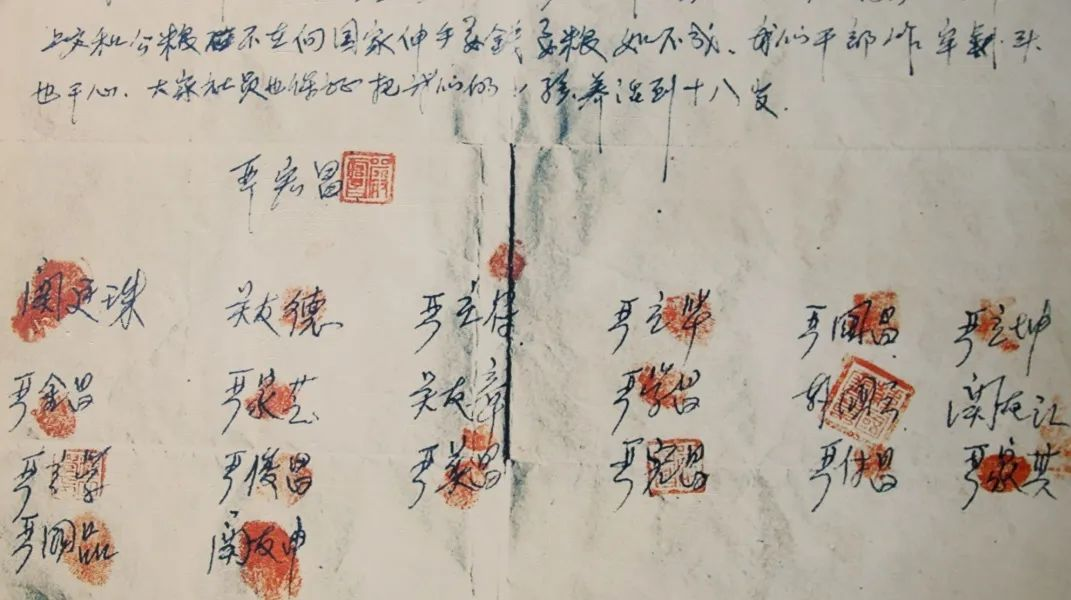 上交和公粮 不在向国家伸手要钱要粮 如不成、我们干部作牢剎头
也干心、大家社员也保证把我们的小孩养活到十八岁.
严宏昌
関廷珠 关友德 严立符 严立华 严国昌 严立坤
严金昌 严家芝 关友章 严学昌 韩国云 関友江
严立学 严俊昌 严美昌 严宏昌 严付昌 严家其
严国品 関友申